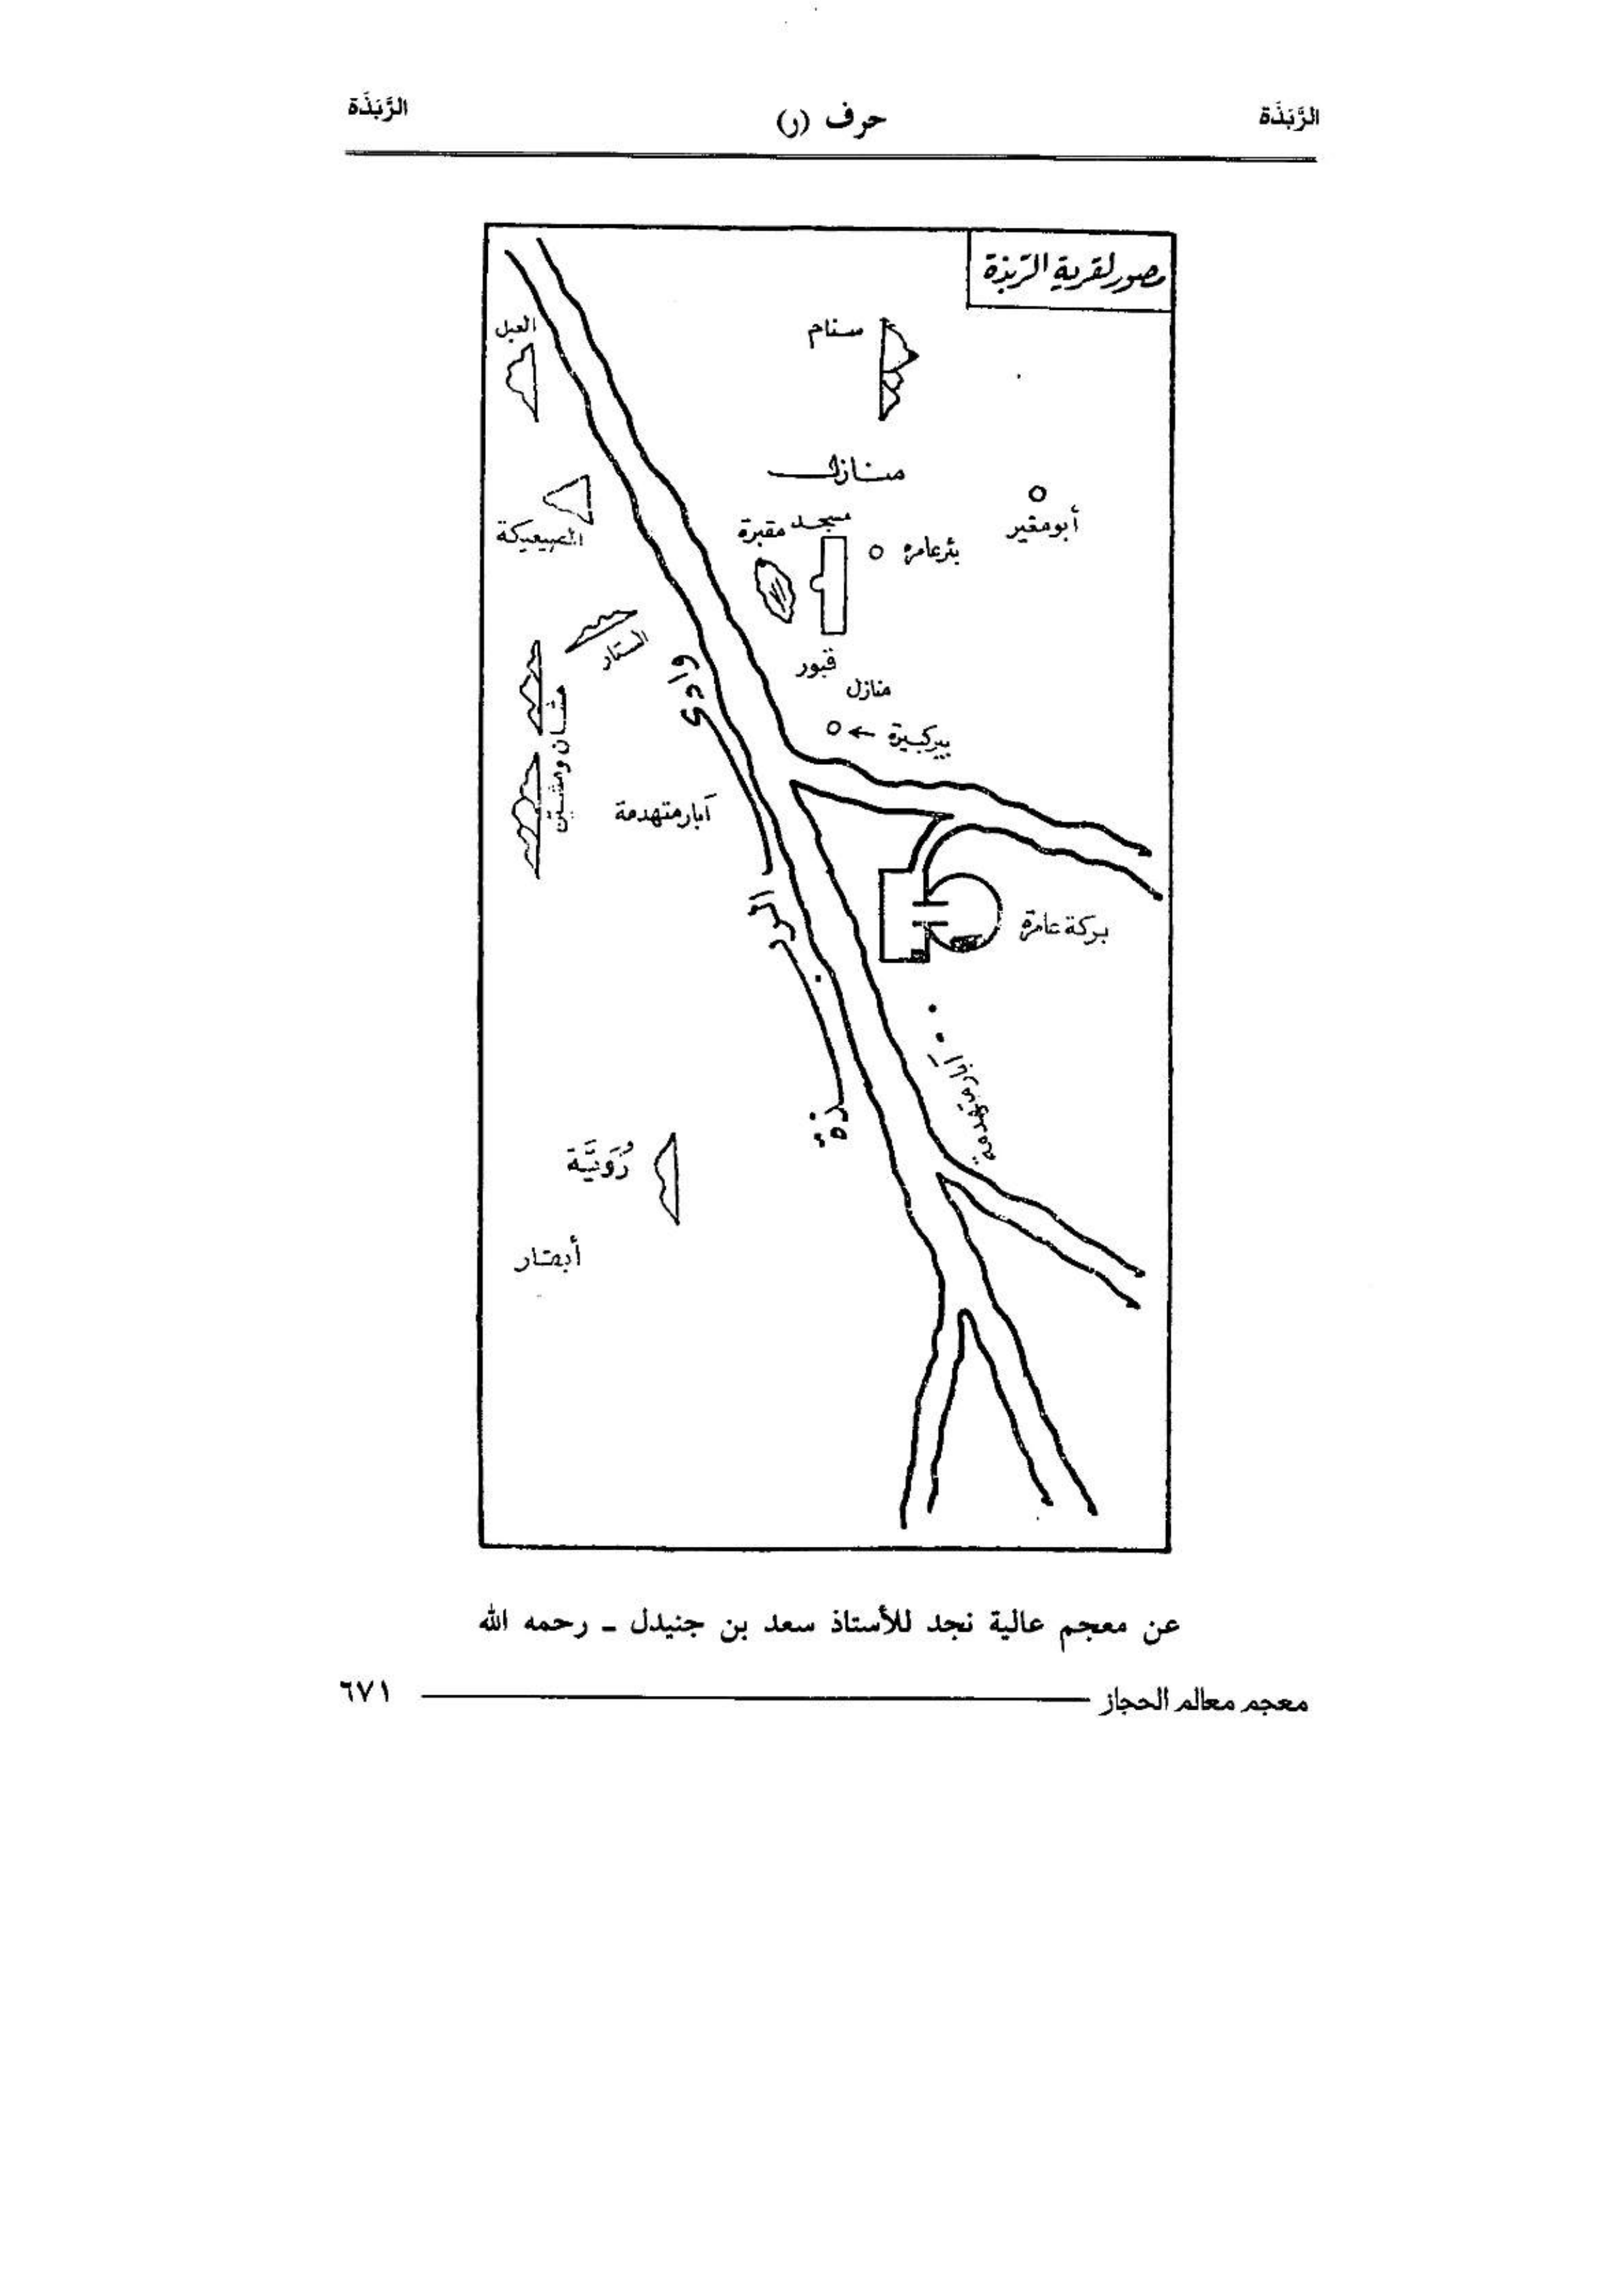 الرَّبَذَة
حرف (ر)
الرَّبَذَة
مصور لقرية الرّبذة
سنام
العبل
منازل
أبو مغير
مسجد
مقبرة
بئر عامرة
الصيعيكة
الستار
قبور
منازل
بير كبيرة
وادي الربذة
مشان ومشين
آبار متهدمة
بركة عامرة
آبار متهدمة
رُوَيَّة
أبصار
عن معجم عالية نجد للأستاذ سعد بن جنيدل ـ رحمه الله
معجم معالم الحجاز
٦٧١